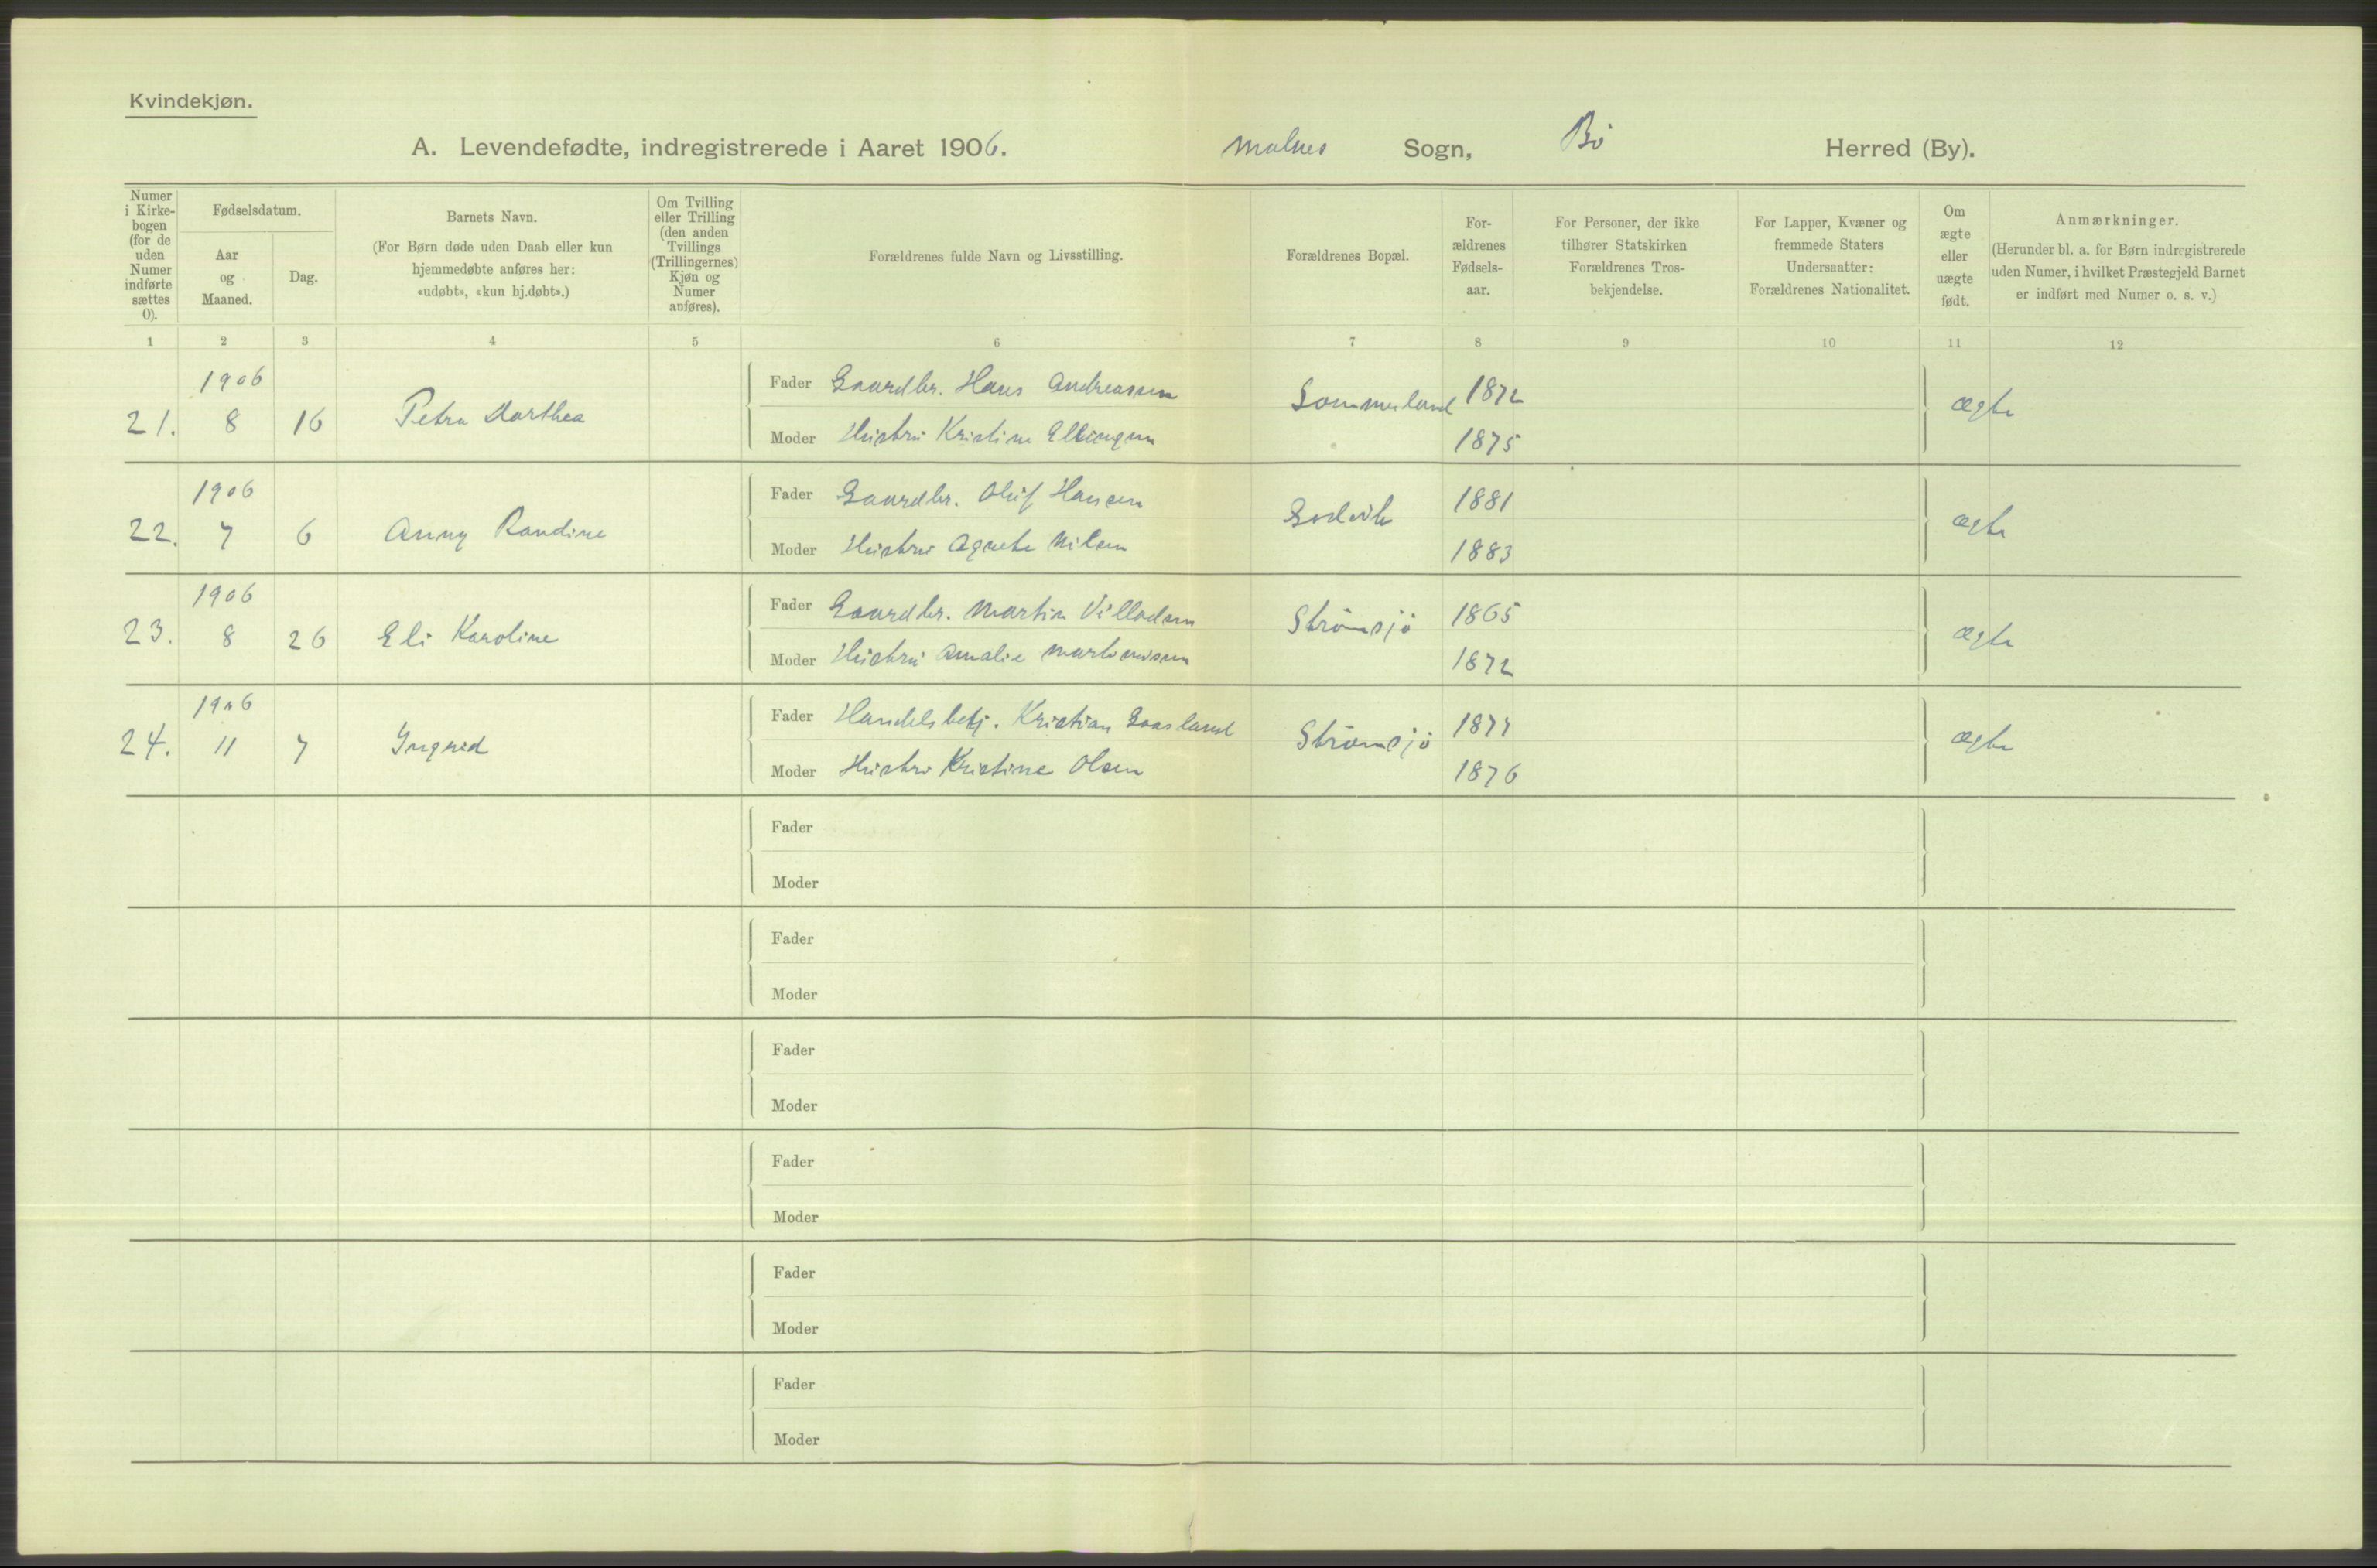 Kvindekjøn.
A. Levendefødte, indregistrerede i Aaret 1906. Malnes Sogn, Bö Herred (By).
Numer i Kirke-bogen (for de uden Numer indførte sættes O).
Fødselsdatum.
Aar og Maaned.
Dag.
Barnets Navn.
(For Børn døde uden Daab eller kun
hjemmedøbte anføres her:
«udøbt», «kun hj.døbt».)
Om Tvilling
eller Trilling
(den anden
Tvillings
(Trillingernes)
Kjøn og
Numer
anføres).
Forældrenes fulde Navn og Livsstilling.
Forældrenes Bopæl.
For-
ældrenes
Fødsels-
aar.
For Personer, der ikke
tilhører Statskirken
Forældrenes Tros-
bekjendelse.
For Lapper, Kvæner og
fremmede Staters
Undersaatter:
Forældrenes Nationalitet.
Om
ægte
eller
uægte
født.
Anmærkninger.
(Herunder bl. a. for Børn indregistrerede
uden Numer, i hvilket Præstegjeld Barnet
er indført med Numer o. s. v.)
1 2 3 4 5 6 7 8 9 10 11 12
1906
21. 8 16 Petra Dorthea
Fader Gaardbr. Hans Andreassen Sommerland 1872 ægte
Moder Hustru Kristine Ellingsen 1875
1906
22. 7 6 Anny Randine
Fader Gaardbr. Oluf Hansen 1881 ægte
Moder Hustru Agnete Nilsen 1883
1906
23. 8 26 Eli Karoline
Fader Gaardbr. Martin Villadsen Strömsjö 1865 ægte
Moder Hustru Amalie Martinussen 1872
1906
24. 11 7 Ingrid
Fader Handelsbetj. Kristian Gaasland Strömsjö 1877 ægte
Moder Hustru Kristine Olsen 1876
Fader
Moder
Fader
Moder
Fader
Moder
Fader
Moder
Fader
Moder
Fader
Moder